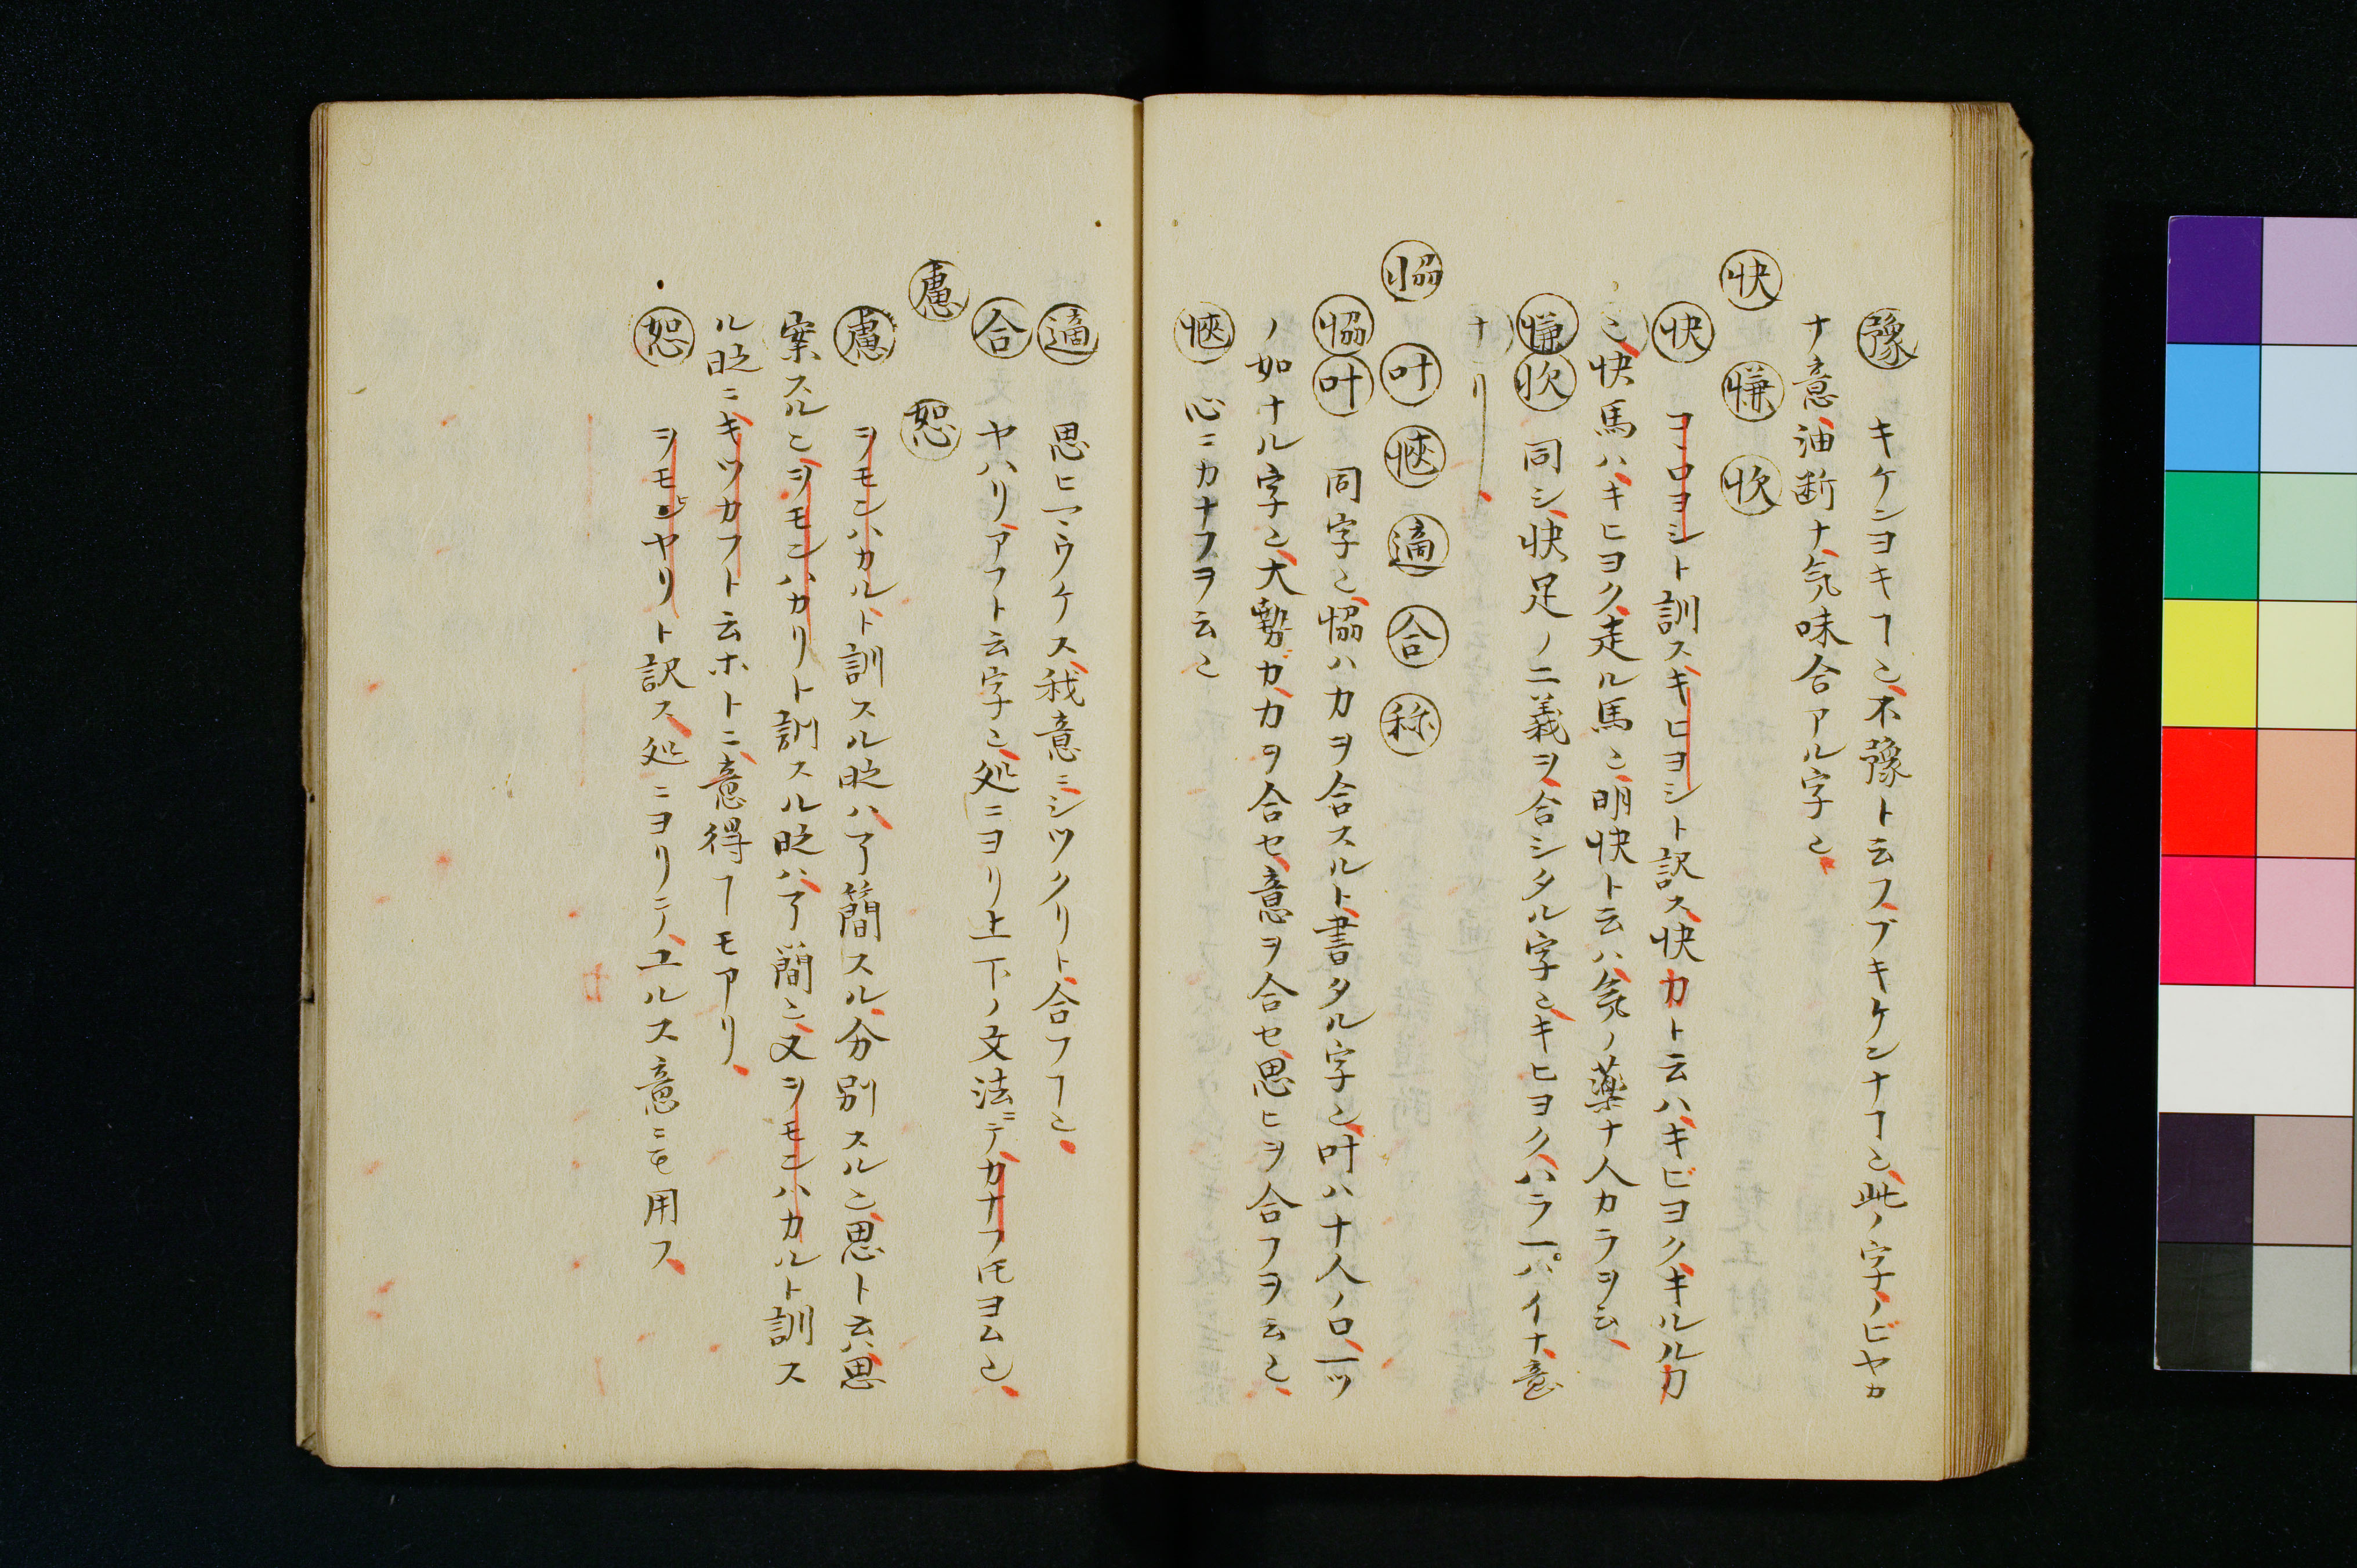 豫 キケンヨキヿ𪜈不豫ト云フブキケンナヿ也此ノ字ノビヤカ
ナ意油断ナ気味合アル字也
快 慊 忺
快 コヽロヨシト訓スキヒヨシト訳ス快刀ト云ハキビヨクキルル刀
也快馬ハキヒヨク走ル馬也明快ト云ハ気ノ薬ナ人カラヲ云
慊 忺 同シ快足ノ二義ヲ合シタル字也キヒヨクハラ一パイナ意
ナリ
恊 叶 愜 適 合 称
恊 叶 同字也恊ハカヲ合スルト書タル字也叶ハ十人ノ口一ツ
ノ如ナル字也大勢ガカヲ合セ意ヲ合セ思ヒヲ合フヲ云也
愜 心ニカナフヲ云也
適 思ヒマウケス我意ニシツクリト合フヿ也
合 ヤハリアフト云字也処ニヨリ上下ノ文法ニテカナフ𪜈ヨム也
慮 恕
慮 ヲモンハカルト訓スル時ハ了簡スル分別スル也思ト云ハ思
案スル也ヲモンハカリト訓スル時ハ了簡也又ヲモンハカルト訓ス
ル時ニキツカフト云ホトニ意得ヿモアリ
恕 ヲモヒヤリト訳ス処ニヨリテユルス意ニモ用フ